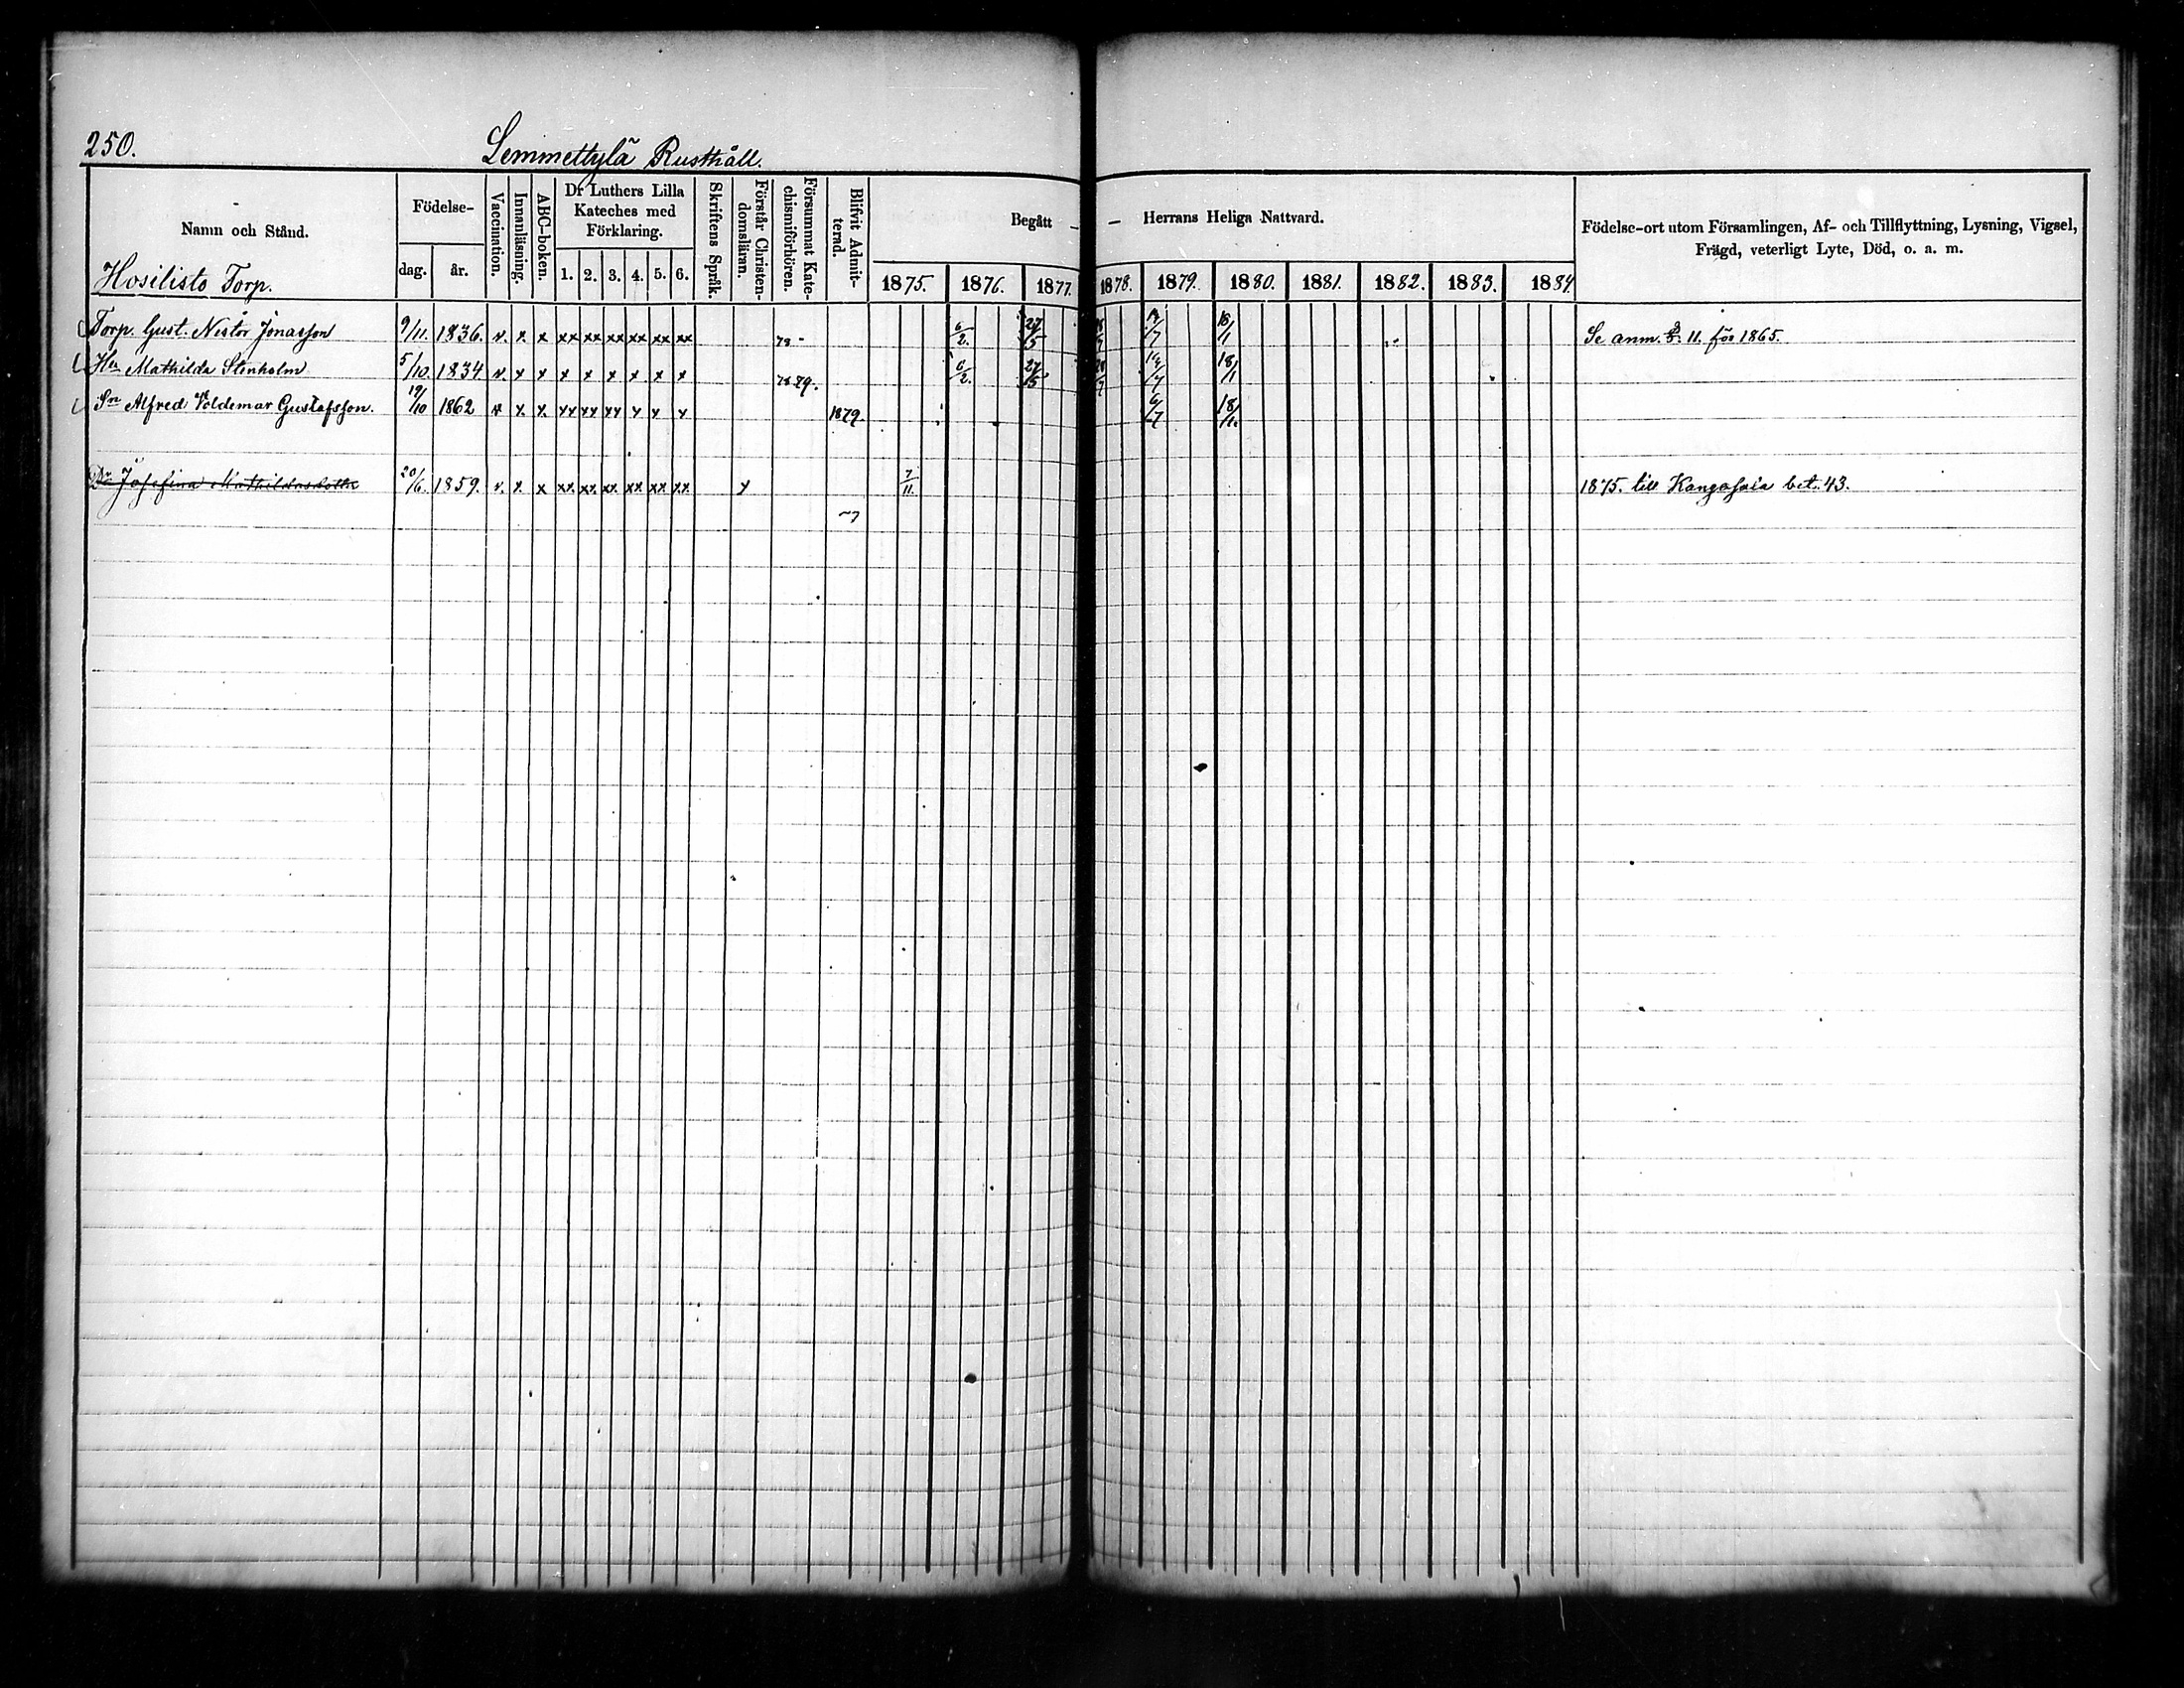 250.
Lemmettylä Rusthåll.
Namn och Stånd.
Födelse-
dag.
år.
Vaccination.
Innanläsning.
ABC-boken.
Dr Luthers Lilla
Kateches med
Förklaring.
1. 2. 3. 4. 5. 6.
Skriftens Språk.
Förstår Christen-
domsläran.
Försummat Kate-
chismiförhören.
Blifvit Admit-
terad.
Begått — — Herrans Heliga Nattvard.
1875. 1876. 1877. 1878. 1879. 1880. 1881. 1882. 1883. 1884.
Födelse-ort utom Församlingen, Af- och Tillflyttning, Lysning, Vigsel,
Frägd, veterligt Lyte, Död, o. a. m.
Hosilisto Torp.
Torp. Gust. Nestor Jonasson 9/11. 1836. v. x x xx xx xx xx xx xx 78 - 6/2. 27/5 18/1 Se anm. 11. för 1865.
Hu Mathilda Stenholm 5/10. 1834 v. x x x x x x x x 78 79. 6/2. 27/5 18/1
Sn Alfred Voldemar Gustafsson. 19/10 1862 v x x xx xx xx x x x 1879. 6/7 18/1.
Dr Josefina Mathildasdotter 20/6. 1859. v. x x xx xx xx xx xx xx x 7/11. 1875. till Kangasala bet. 43.